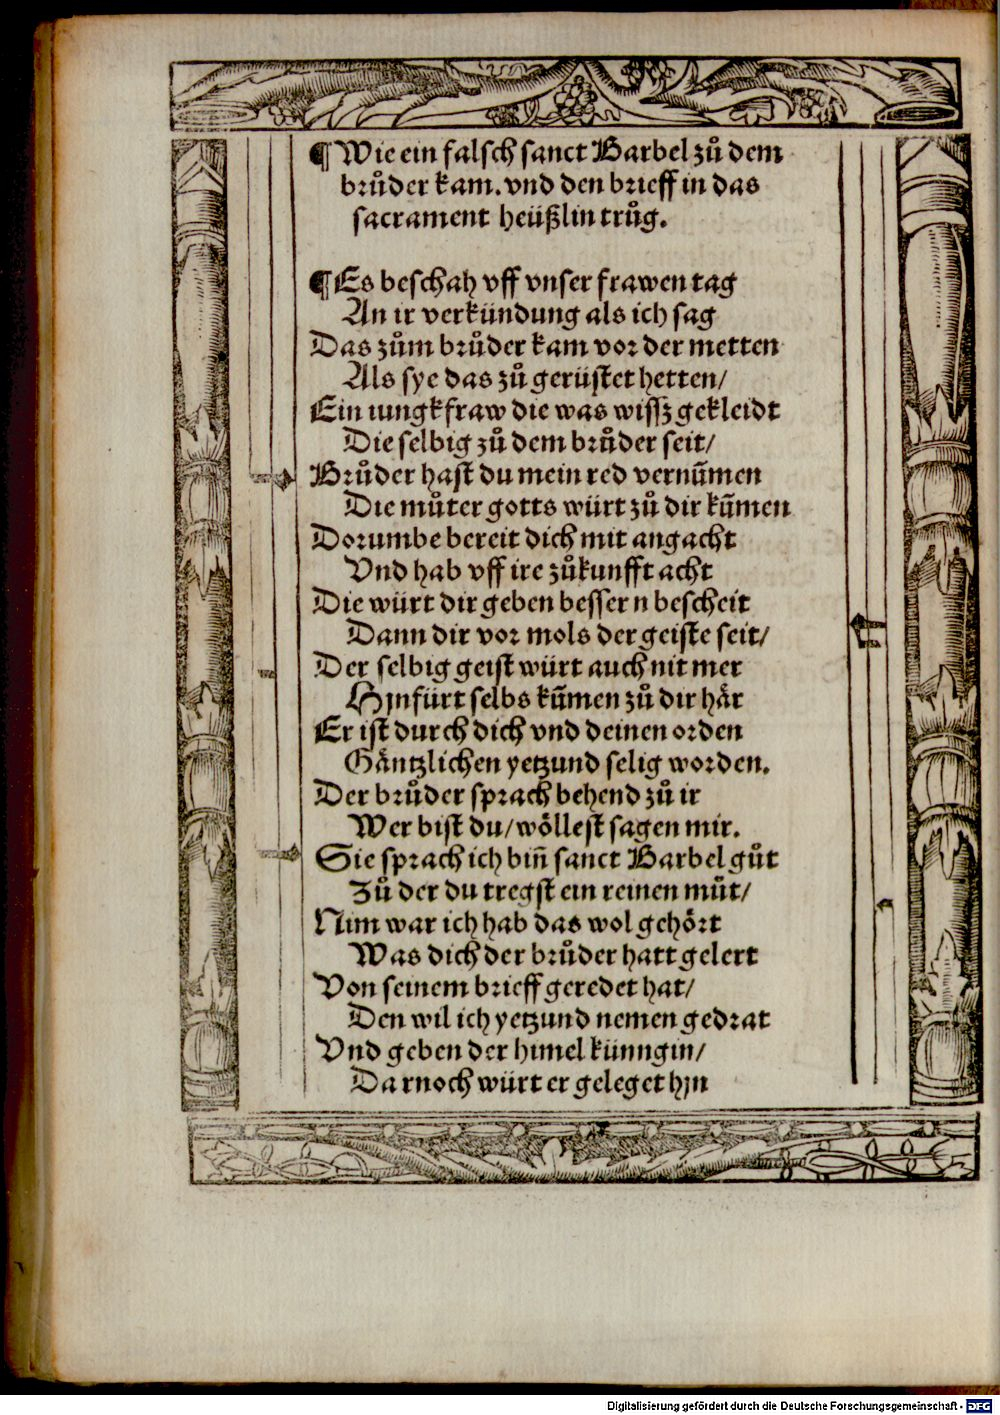 ¶ Wie ein falsch sanct Barbel zů dem
brůder kam. vnd den brieff in das
sacrament heüßlin trůg.
¶ Es beschah vff vnser frawen tag
An ir verkündung als ich sag
Das zům brůder kam vor der metten
Als sye das zů gerüstet hetten/
Ein iungkfraw die was wissz gekleidt
Die selbig zů dem brůder seit/
Brůder hast du mein red vernūmen
Die můter gotts würt zů dir kūmen
Dorumbe bereit dich mit angacht
Vnd hab vff ire zůkunfft acht
Die würt dir geben bessern bescheit
Dann dir vor mols der geiste seit/
Der selbig geist würt auch nit mer
Hjnfürt selbs kūmen zů dir här
Er ist durch dich vnd deinen orden
Gäntzlichen yetzund selig worden.
Der brůder sprach behend zů ir
Wer bist du/ wöllest sagen mir.
Sie sprach ich bin̄ sanct Barbel gůt
Zů der du tregst ein reinen můt/
Nim war ich hab das wol gehört
Was dich der brůder hatt gelert
Von seinem brieff geredet hat/
Den wil ich yetzund nemen gedrat
Vnd geben der himel künngin/
Darnoch würt er geleget hjn
Digitalisierung gefördert durch die Deutsche Forschungsgemeinschaft - DFG